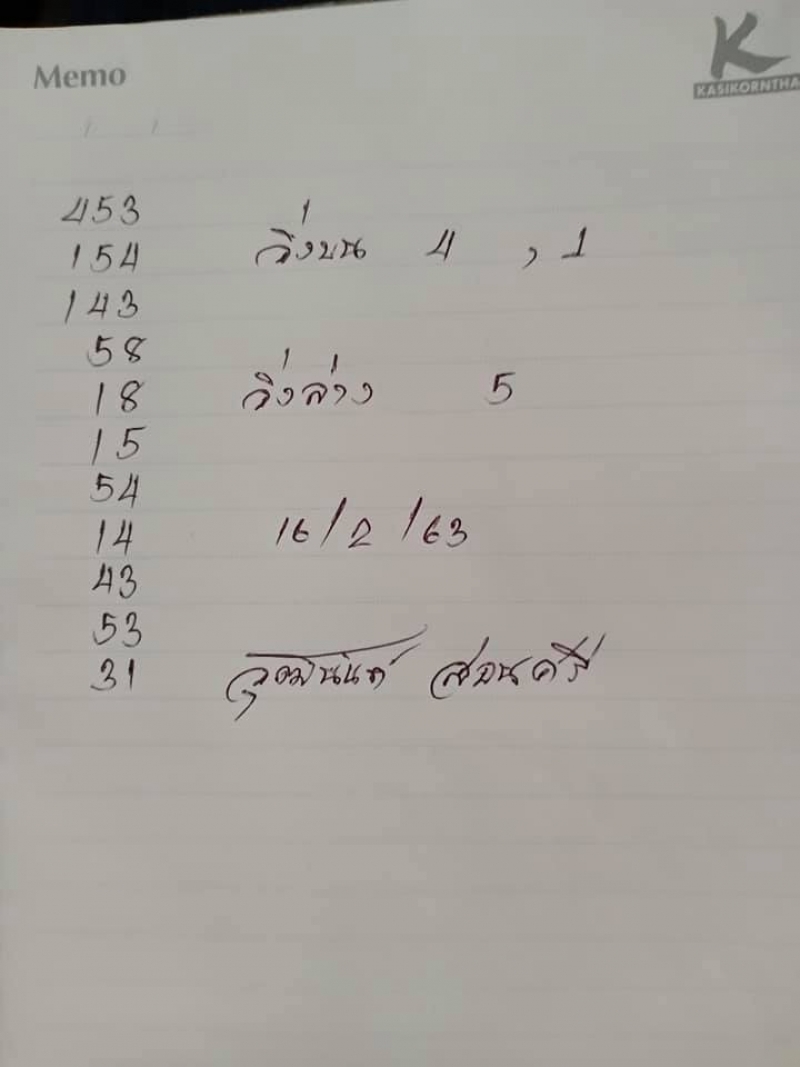 Memo
K
KASIKORNTHA
453
154 วิ่งบน 4 , 1
143
58
18 วิ่งล่าง 5
15
54
14 16/2/63
43
53
31 สอนศรี